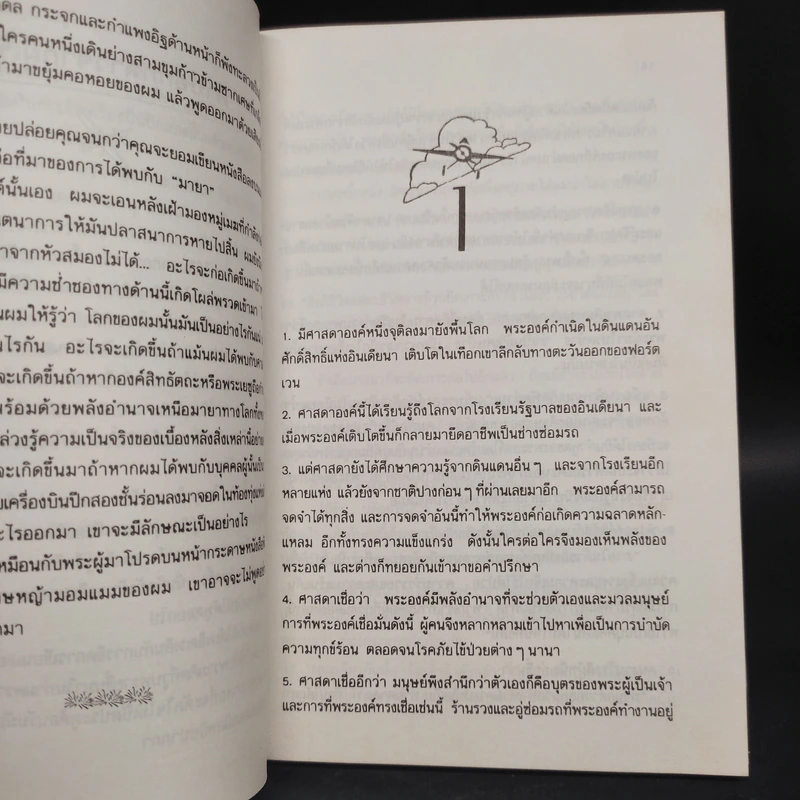 กระจกและกำแพงอิฐด้านหน้าก็พังทะลาย
ใครคนหนึ่งเดินย่างสามขุมก้าวข้ามซากเศษ
มาขยุ้มคอหอยของผม แล้วพูดออกมาด้วย
ปล่อยคุณจนกว่าคุณจะยอมเขียนหนังสือ
ที่มาของการได้พบกับ "มายา"
นั้นเอง ผมจะเอนหลังเฝ้ามองหมู่เมฆที่กำลัง
การให้มันปลาสนาการหายไปสิ้น ผม
จากหัวสมองไม่ได้... อะไรจะก่อเกิดขึ้นมา
มีความช่ำชองทางด้านนี้เกิดโผล่พรวดเข้ามา
ผมให้รู้ว่า โลกของผมนั้นมันเป็นอย่างไรกัน
ไรกัน อะไรจะเกิดขึ้นถ้าแม้นผมได้พบกับ
จะเกิดขึ้นถ้าหากองค์สิทธัตถะหรือพระเยซู
พร้อมด้วยพลังอำนาจเหนือมายาทางโลก
ล่วงรู้ความเป็นจริงของเบื้องหลังสิ่งเหล่านี้
จะเกิดขึ้นมาถ้าหากผมได้พบกับบุคคลผู้นั้น
เครื่องบินปีกสองชั้นร่อนลงมาจอดในท้องทุ่ง
อะไรออกมา เขาจะมีลักษณะเป็นอย่างไร
เหมือนกับพระผู้มาโปรดบนหน้ากระดาษหนังสือ
หญ้ามอมแมมของผม เขาอาจจะไม่พูด
มา
1
1. มีศาสดาองค์หนึ่งจุติลงมายังพื้นโลก พระองค์กำเนิดในดินแดนอัน
ศักดิ์สิทธิ์แห่งอินเดียนา เติบโตในเทือกเขาลึกลับทางตะวันออกของฟอร์ต
เวน
2. ศาสดาองค์นี้ได้เรียนรู้ถึงโลกจากโรงเรียนรัฐบาลของอินเดียนา และ
เมื่อพระองค์เติบโตขึ้นก็กลายมายึดอาชีพเป็นช่างซ่อมรถ
3. แต่ศาสดายังได้ศึกษาความรู้จากดินแดนอื่นๆ และจากโรงเรียนอีก
หลายแห่ง แล้วยังจากชาติปางก่อนๆ ที่ผ่านเลยมาอีก พระองค์สามารถ
จดจำได้ทุกสิ่ง และการจดจำอันนี้ทำให้พระองค์ก่อเกิดความฉลาดหลัก-
แหลม อีกทั้งทรงความแข็งแกร่ง ดังนั้นใครต่อใครจึงมองเห็นพลังของ
พระองค์ และต่างก็ทยอยกันเข้ามาขอคำปรึกษา
4. ศาสดาเชื่อว่า พระองค์มีพลังอำนาจที่จะช่วยตัวเองและมวลมนุษย์
การที่พระองค์เชื่อมั่นดังนี้ ผู้คนจึงหลากหลามเข้าไปหาเพื่อเป็นการบำบัด
ความทุกข์ร้อน ตลอดจนโรคภัยไข้ป่วยต่างๆ นานา
5. ศาสดาเชื่ออีกว่า มนุษย์พึงสำนึกว่าตัวเองก็คือบุตรของพระผู้เป็นเจ้า
และการที่พระองค์ทรงเชื่อเช่นนี้ ร้านรวงและอู่ซ่อมรถที่พระองค์ทำงานอยู่